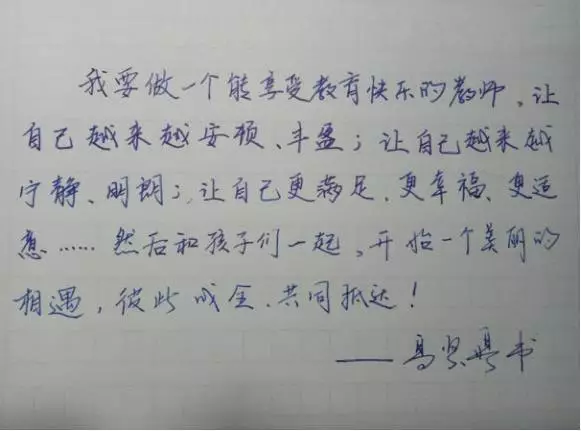 我要做一个能享受教育快乐的教师。让
自己越来越安顿、丰盈；让自己越来越
宁静、明朗；让自己更满足、更幸福、更适
意……然后和孩子们一起，开始一个美丽的
相遇，彼此成全、共同抵达！
——高 书